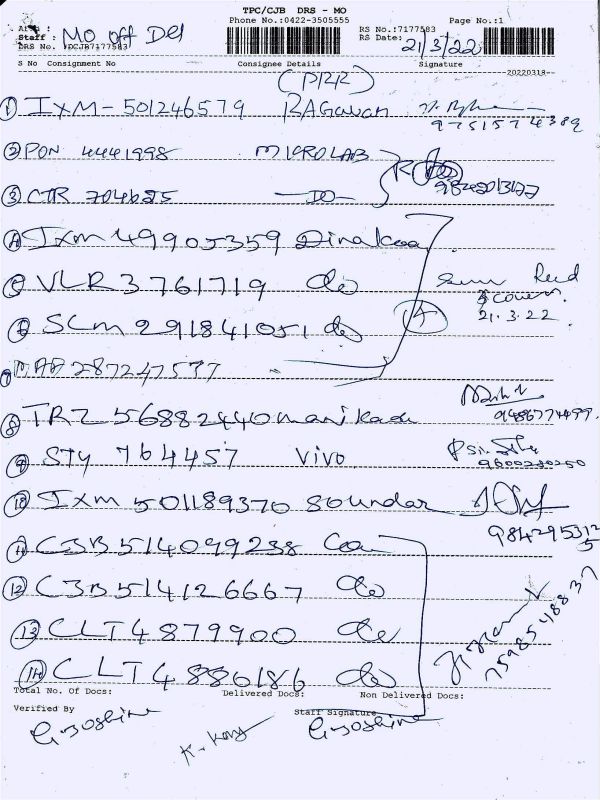 TPC/CJB DRS - MO
Phone No.:0422-3505555 Page No.:1
Area :
Staff : MO off Del RS No.:7177583
DRS No. :DCJB7177583 RS Date: 21/3/22
S No Consignment No Consignee Details Signature
20220318
(P122)
1 IXM-501246579 RAGavan 9751574389
2 PON 4441998 MICROLAB 9842013122
3 CTR 704625 —DO—
4 Ixm 49905359 Dinakar
5 VLR 3761719 do Recd
6 SCM 291841051 do 4 covers. 21.3.22
7 MAA 287247537
8 TRZ 56882440 manikada 9486774499
9 STY 764457 vivo 9600230250
10 Ixm 501189370 Soundar 9842953125
11 CJB 514099238
12 CJB 514126667 do
13 CLT 4879900 do 7598548837
14 CLT 4886186 do
Total No. Of Docs: Delivered Docs: Non Delivered Docs:
Verified By Staff Signature